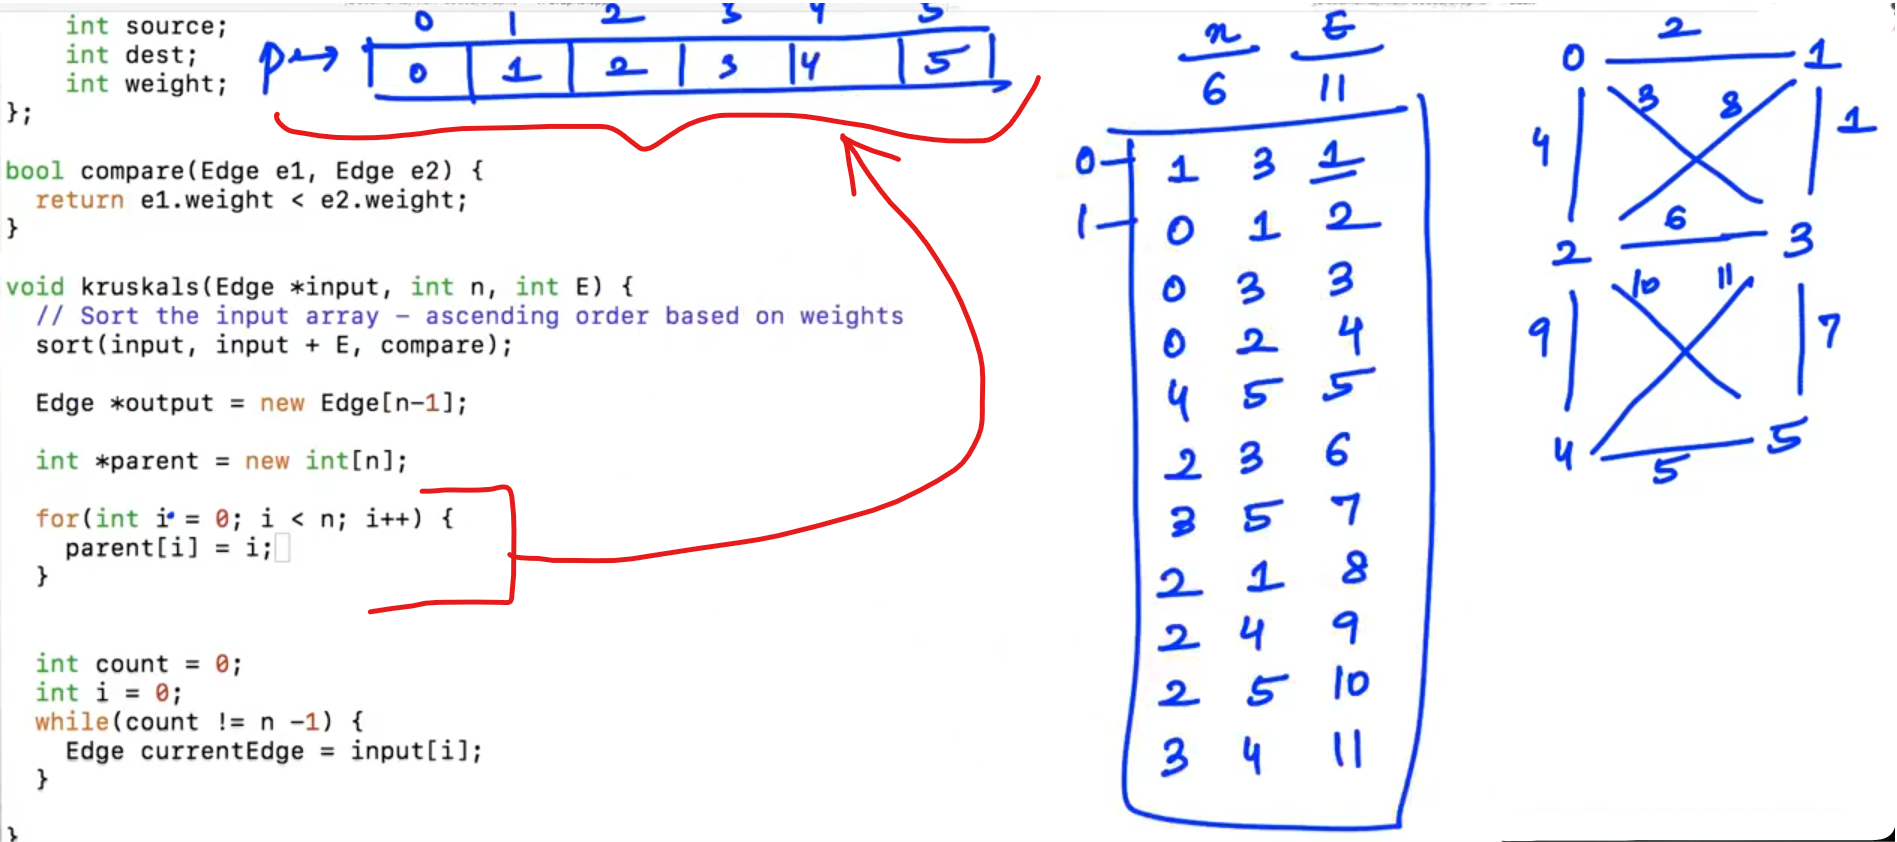 int source;
int dest;
int weight;
};
bool compare(Edge e1, Edge e2) {
return e1.weight < e2.weight;
}
void kruskals(Edge *input, int n, int E) {
// Sort the input array – ascending order based on weights
sort(input, input + E, compare);
Edge *output = new Edge[n-1];
int *parent = new int[n];
for(int i = 0; i < n; i++) {
parent[i] = i;
}
int count = 0;
int i = 0;
while(count != n -1) {
Edge currentEdge = input[i];
}
}
0 1 2 3 4 5
p → 0 1 2 3 4 5
n E
6 11
0 1 3 1
1 0 1 2
0 3 3
0 2 4
4 5 5
2 3 6
3 5 7
2 1 8
2 4 9
2 5 10
3 4 11
2
0 1
3 8
4 1
6
2 3
10 11
9 7
4 5
5